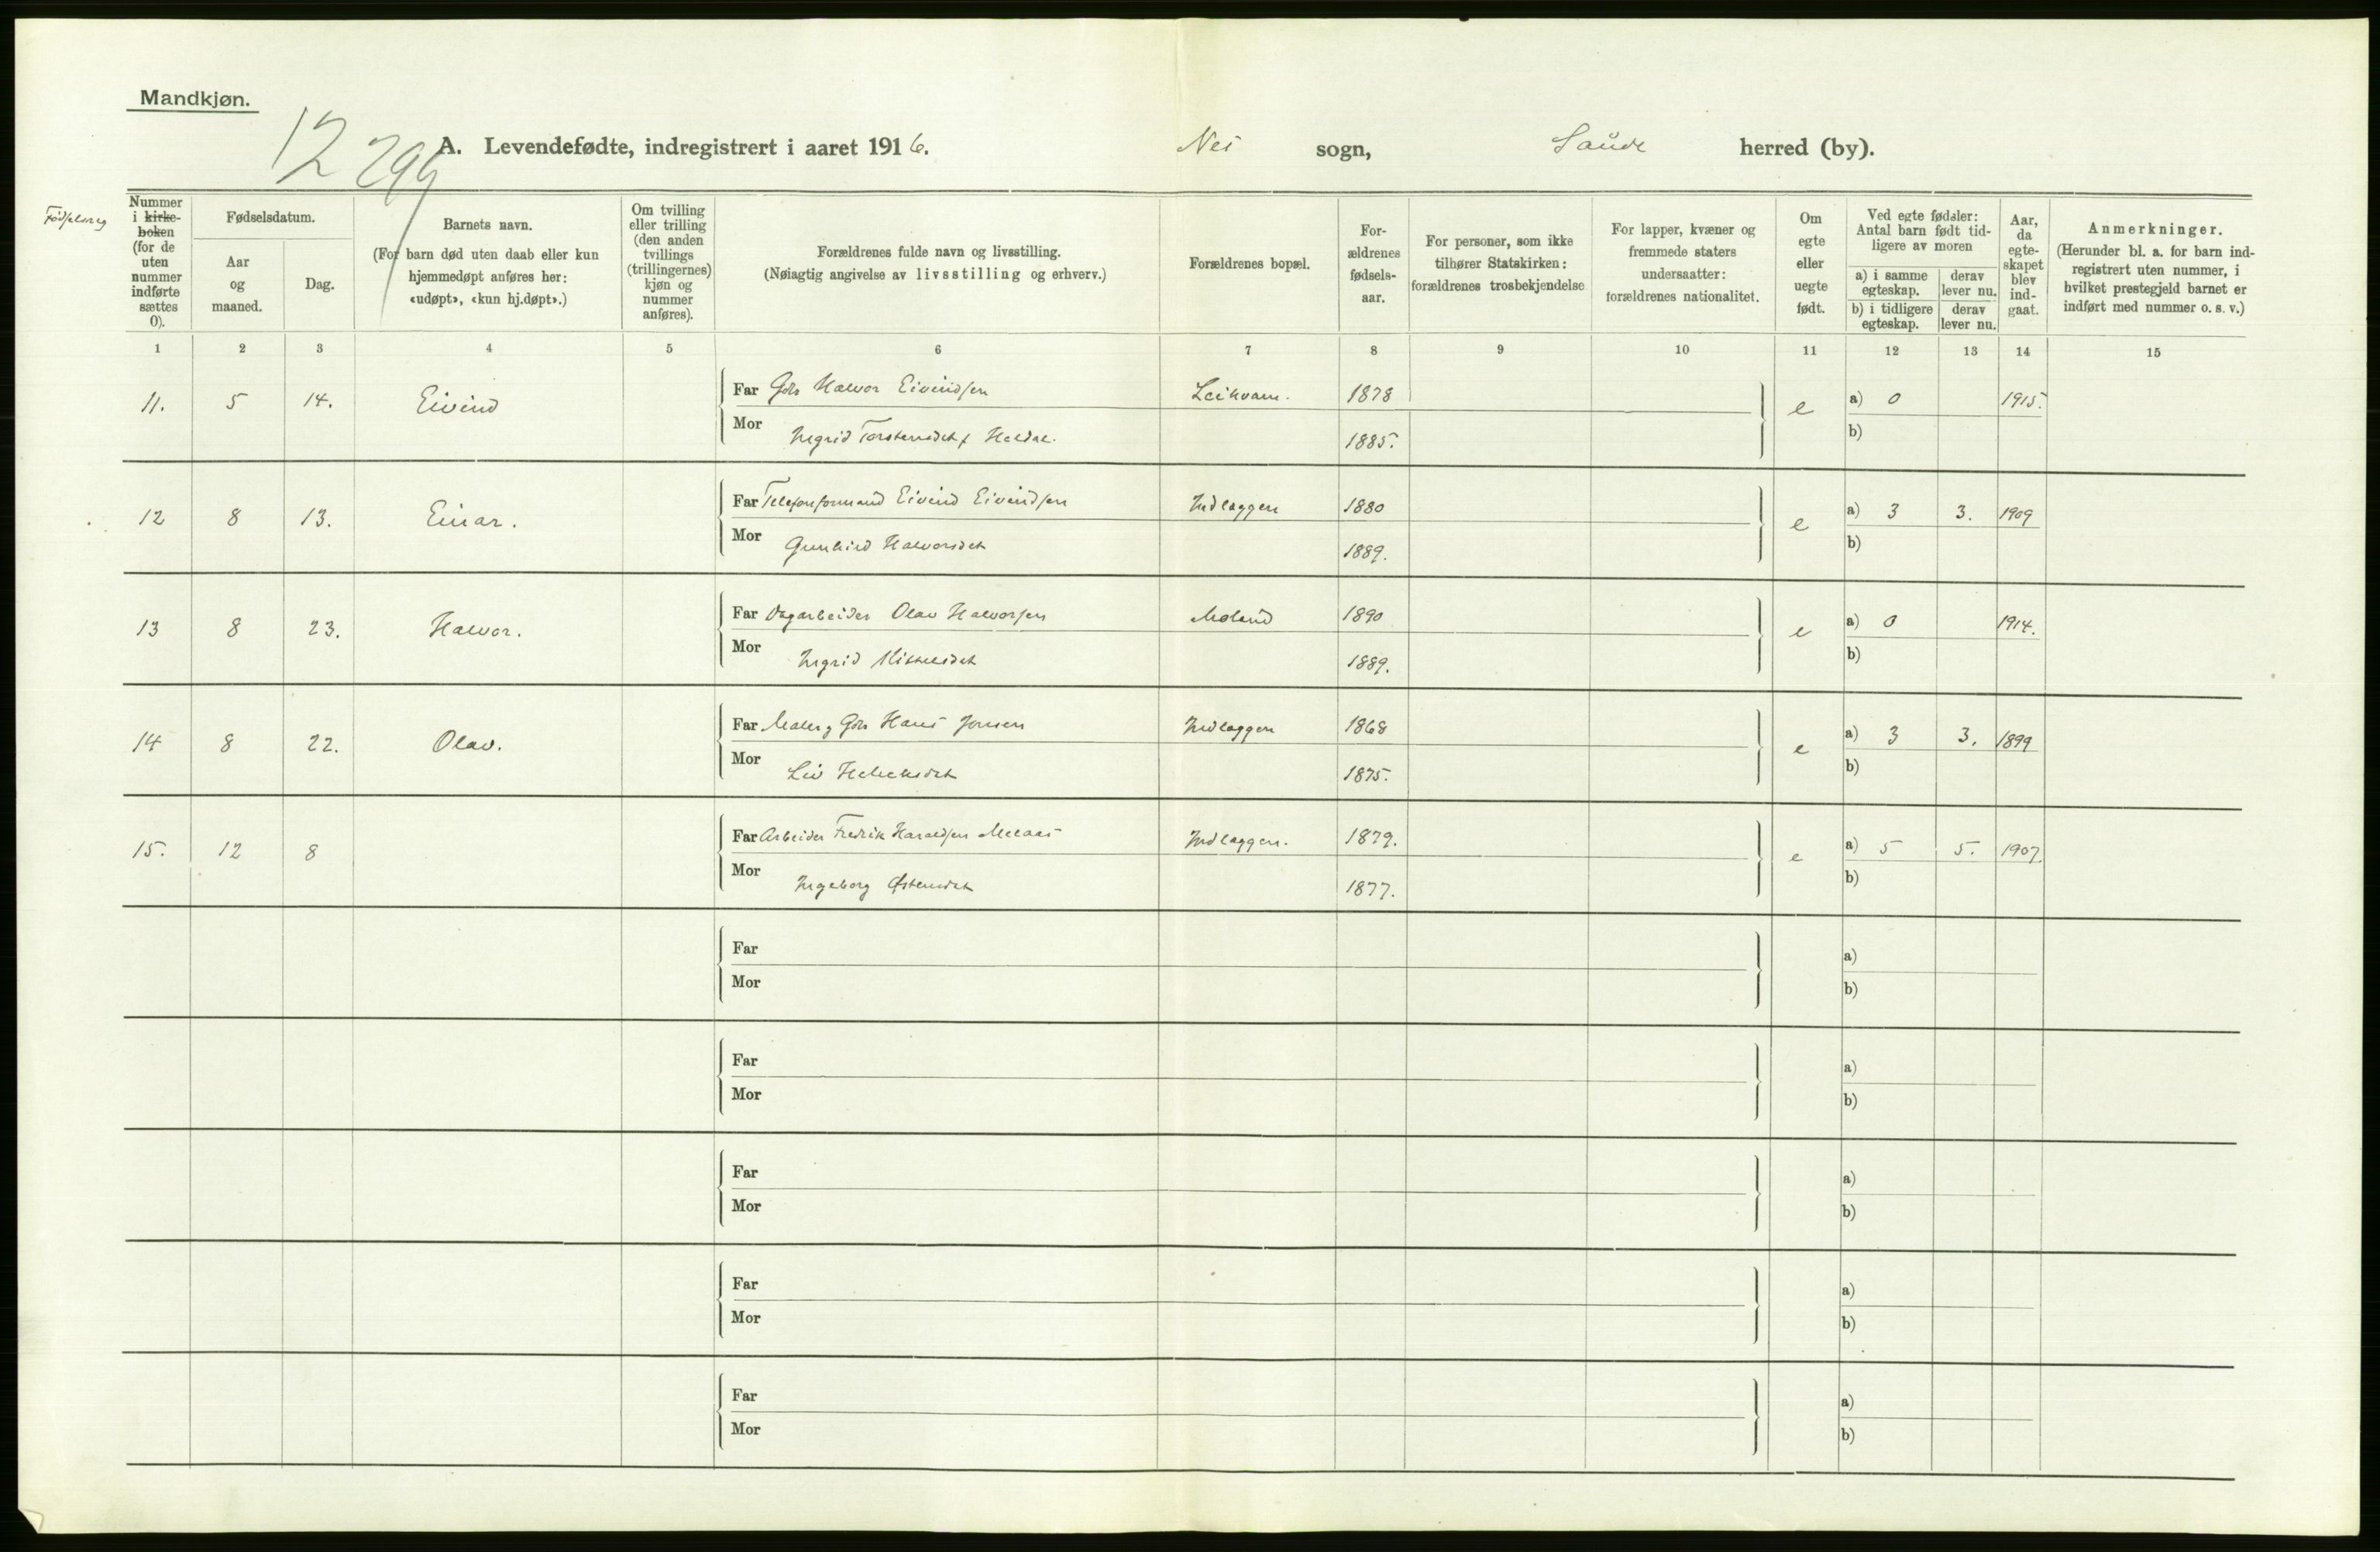 Mandkjøn.
12 299
A. Levendefødte, indregistrert i aaret 1916. Nes sogn, Saude herred (by).
Fødselsreg
Nummer i kirkeboken (for de uten nummer indførte sættes 0).
Fødselsdatum.
Aar og maaned.
Dag.
Barnets navn.
(For barn død uten daab eller kun hjemmedøpt anføres her: «udøpt», «kun hj.døpt».)
Om tvilling eller trilling (den anden tvillings (trillingernes) kjøn og nummer anføres).
Forældrenes fulde navn og livsstilling.
(Nøiagtig angivelse av livsstilling og erhverv.)
Forældrenes bopæl.
Forældrenes fødselsaar.
For personer, som ikke tilhører Statskirken: forældrenes trosbekjendelse
For lapper, kvæner og fremmede staters undersaatter: forældrenes nationalitet.
Om egte eller uegte født.
Ved egte fødsler: Antal barn født tidligere av moren
a) i samme egteskap. derav lever nu.
b) i tidligere egteskap. derav lever nu.
Aar, da egteskapet blev indgaat.
Anmerkninger.
(Herunder bl. a. for barn indregistrert uten nummer, i hvilket prestegjeld barnet er indført med nummer o. s. v.)
1 2 3 4 5 6 7 8 9 10 11 12 13 14 15
11. 5 14. Eivind Far Gbr Halvor Eivindsen Leikvam. 1878 e a) 0 1915.
Mor Ingrid Torstensdet f Heldal. 1885. b)
12 8 13. Einar. Far Telefonformand Eivind Eivindsen Indlaggen 1880 e a) 3 3. 1909
Mor Gunhild Halvorsdet 1889. b)
13 8 23. Halvor. Far Dagarbeider Olav Halvorsen Moland 1890 e a) 0 1914.
Mor Ingrid Kittelsdet 1889. b)
14 8 22. Olav. Far Maler og Gbr Hans Jonsen Indlaggen 1868 e a) 3 3. 1899
Mor Liv 1875. b)
15. 12 8 Far Arbeider Fredrik Haraldsen Melaas Indlaggen. 1879. e a) 5 5. 1907.
Mor Ingeborg Østensdet 1877. b)
Far a)
Mor b)
Far a)
Mor b)
Far a)
Mor b)
Far a)
Mor b)
Far a)
Mor b)